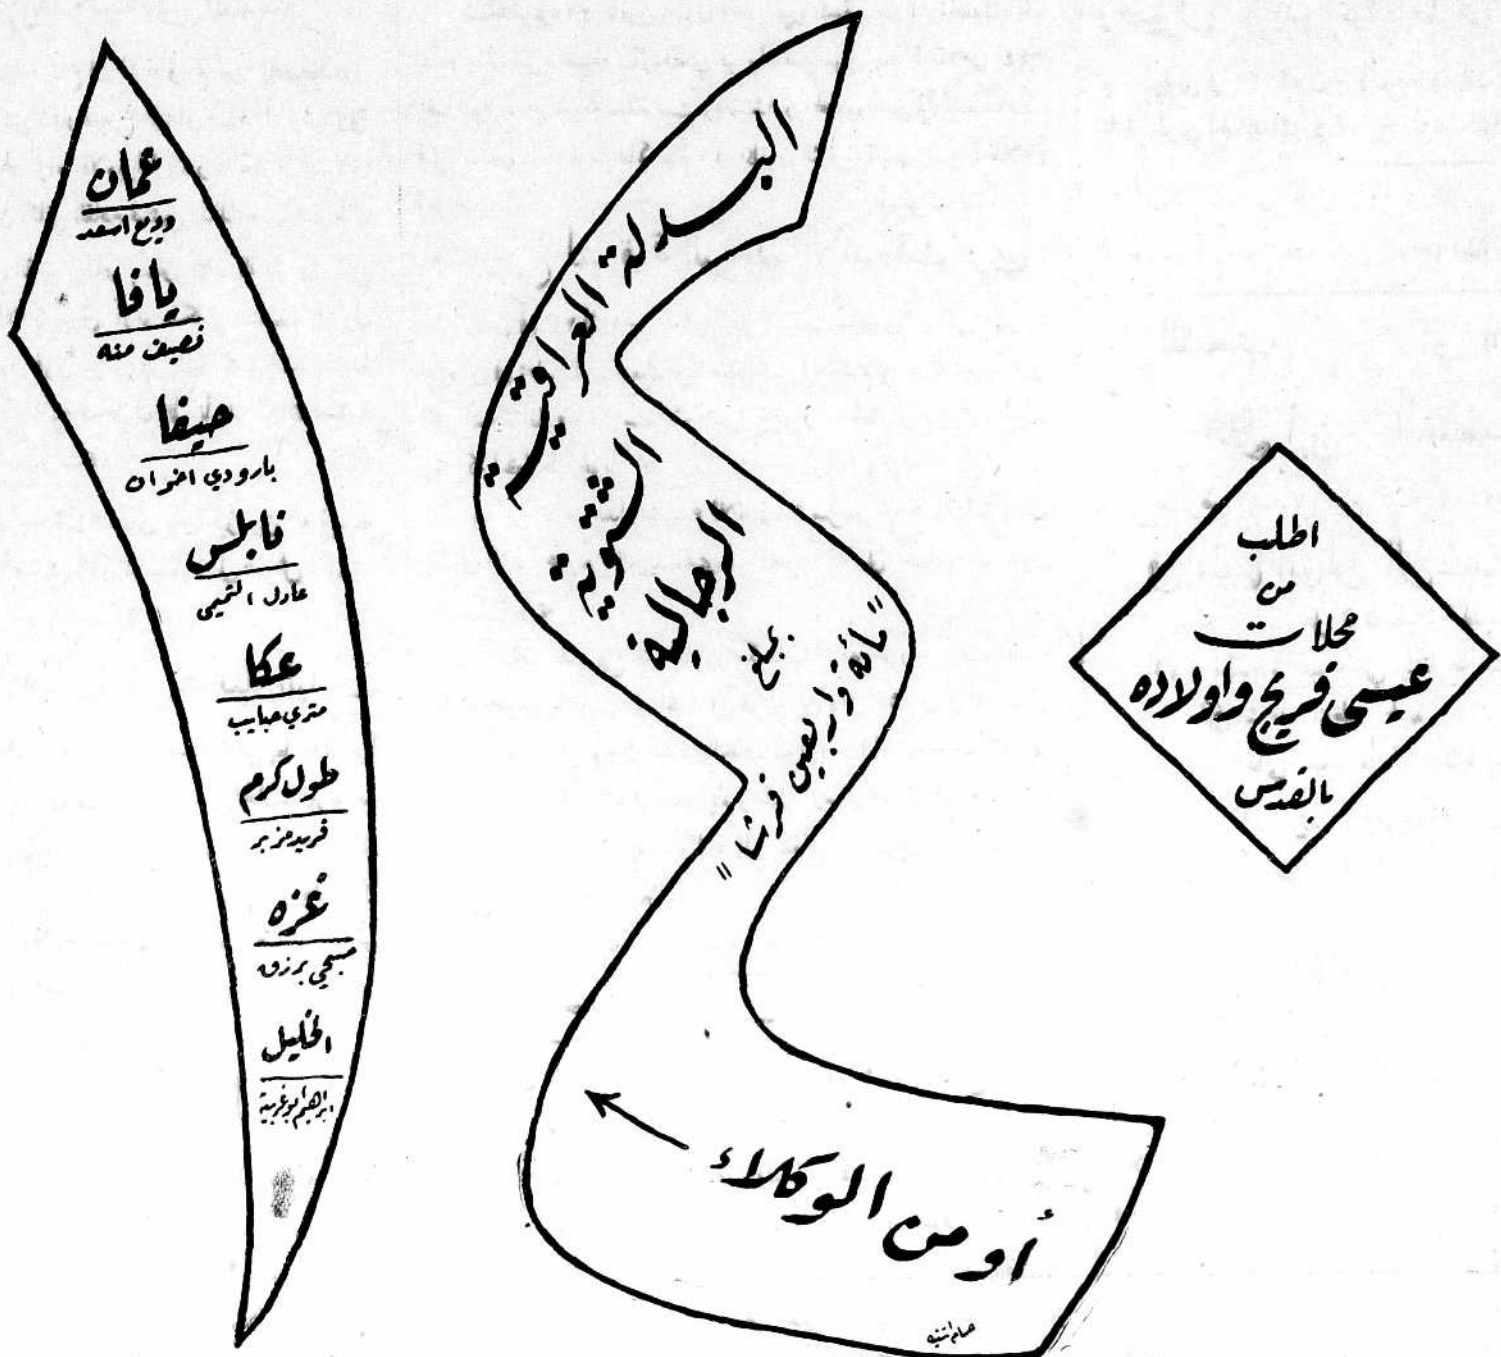 اطلب
من
محلات
عيسى فريج واولاده
بالقدس
البدلة العراقية
الشتوية
الرجالية
بمبلغ
"مائة واربعين قرشا"
أو من الوكلاء
عمان
وديع اسعد
يافا
نصيف منه
حيفا
بارودي اخوان
نابلس
عادل التميمي
عكا
متري حبايب
طول كرم
فريد مزبر
غزه
صبحي برزق
الخليل
ابراهيم ابو غربية